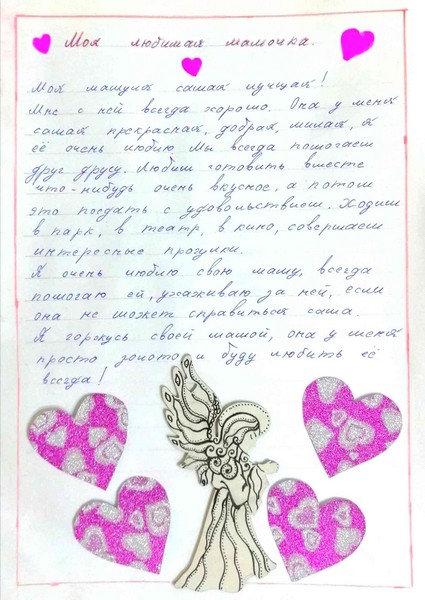 Моя любимая мамочка.
Моя мамуля самая лучшая!
Мне с ней всегда хорошо. Она у меня
самая прекрасная, добрая, милая, я
её очень люблю. Мы всегда помогаем
друг другу. Любим готовить вместе
что-нибудь очень вкусное, а потом
это поедать с удовольствием. Ходим
в парк, в театр, в кино, совершаем
интересные прогулки.
Я очень люблю свою маму, всегда
помогаю ей, ухаживаю за ней, если
она не может справиться сама.
Я горжусь своей мамой, она у меня
просто золото и буду любить её
всегда!